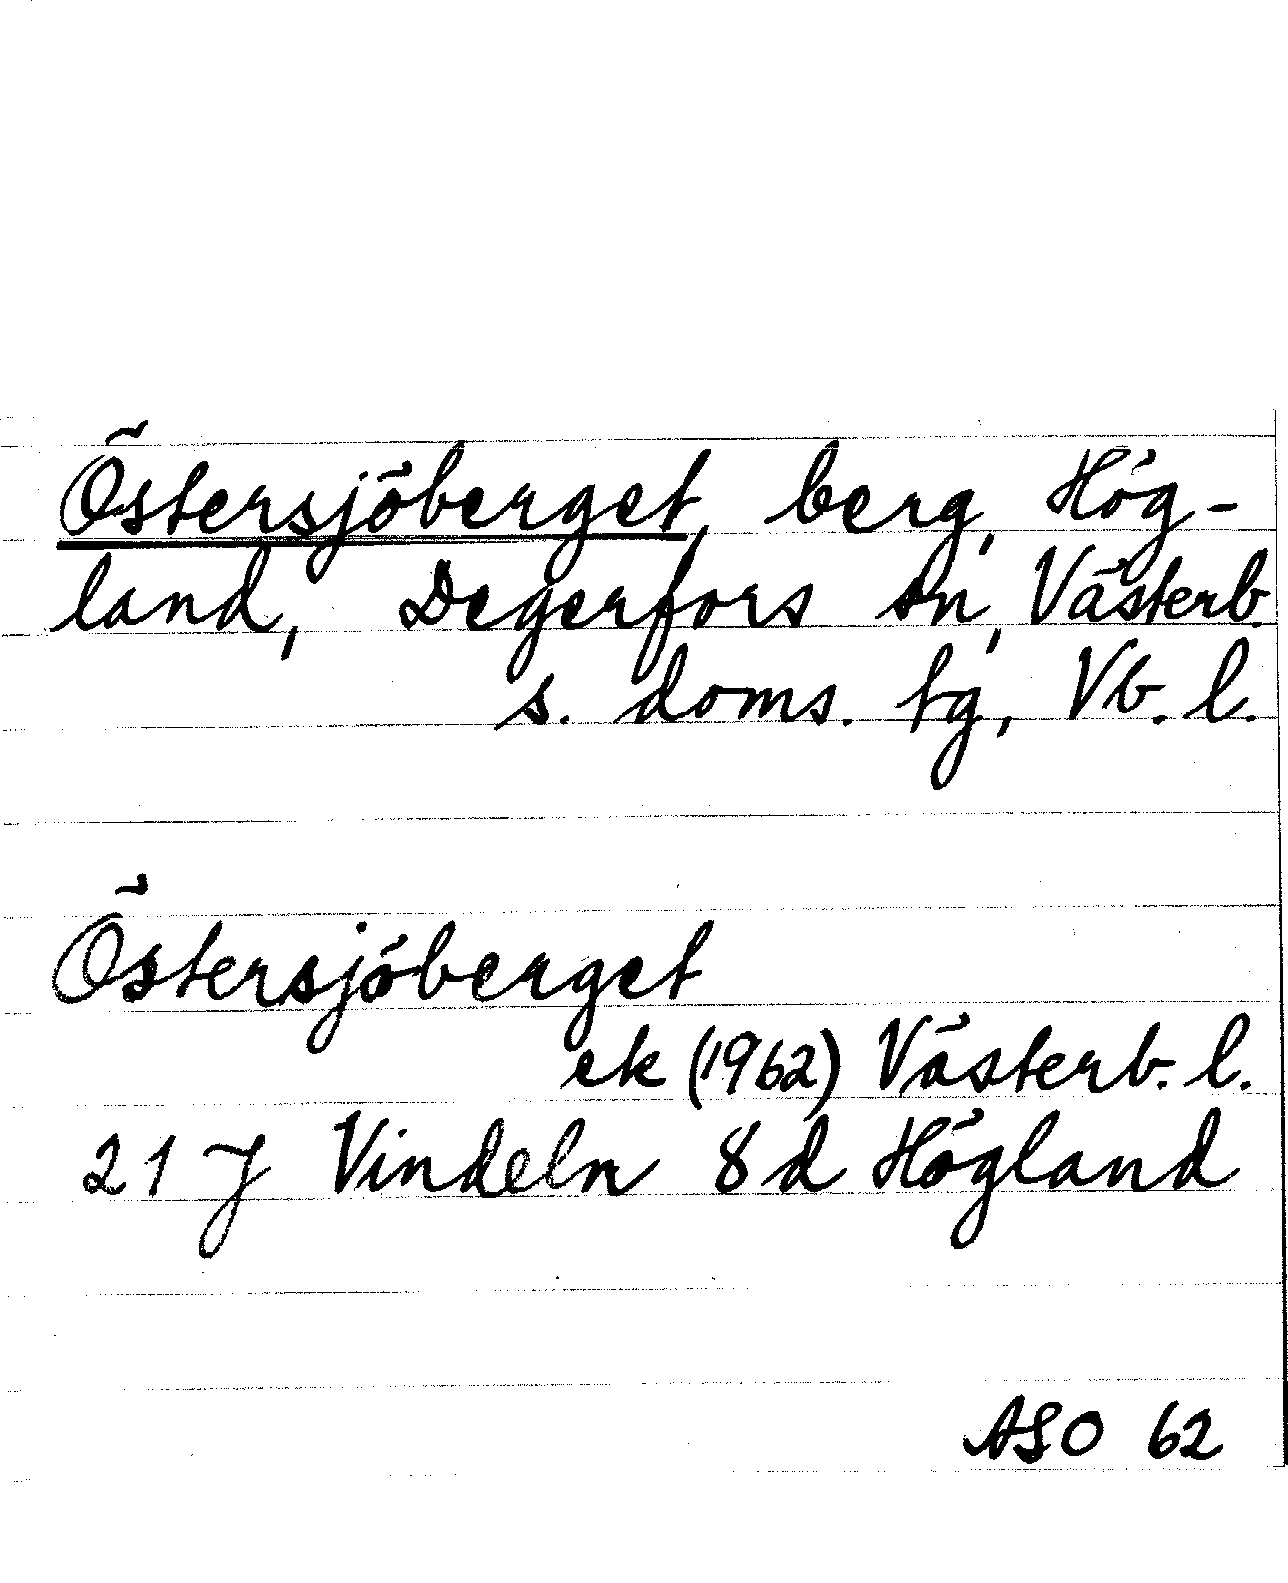 Östersjöberget, berg, Hög-
land, Degerfors sn, Västerb.
s. doms. tg, Vb. l.
Östersjöberget
ek (1962) Västerb. l.
21 J Vindeln 8d Högland
ASO 62